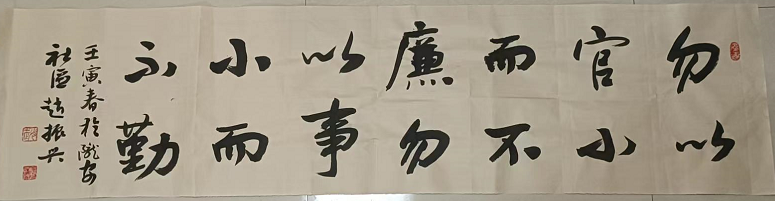 勿以
官小
而不
廉勿
以事
小而
不勤
壬寅春於隴安
社區趙振興